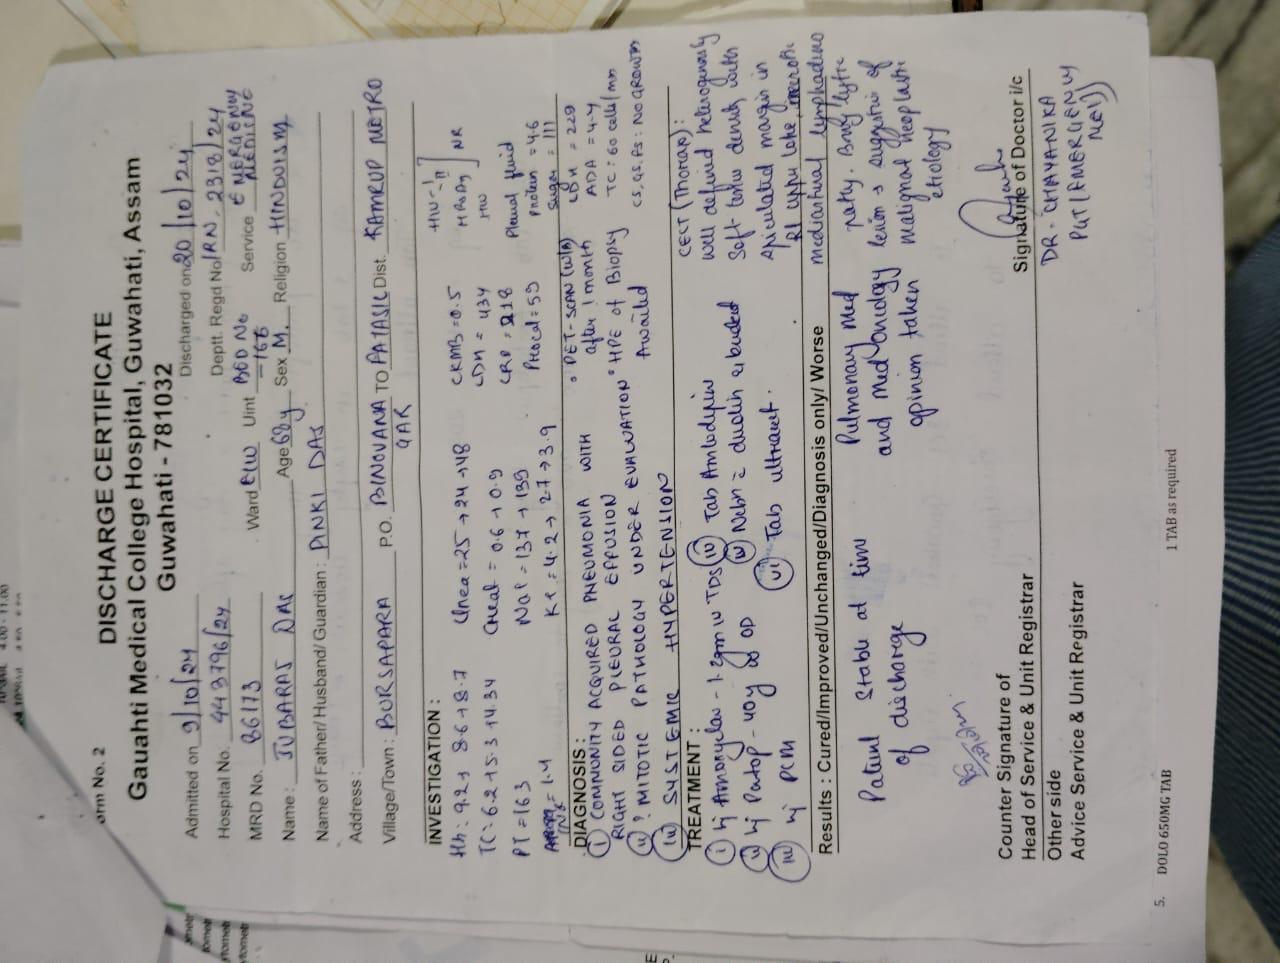 orm No. 2
DISCHARGE CERTIFICATE
Gauahti Medical College Hospital, Guwahati, Assam
Guwahati - 781032
Admitted on 9/10/24 Discharged on 20/10/24
Hospital No. 443796/24 Deptt. Regd No IRN- 2318/24
MRD No. 86173 Ward EW Uint BED No =166 Service EMERGENCY MEDICINE
Name : JUBARAJ DAS Age 68y Sex M. Religion HINDUISM
Name of Father/Husband/ Guardian : PINKI DAS
Address :
Village/Town : BORSAPARA P.O. BINOVANA GAR TO PATASIL Dist. KAMRUP METRO
INVESTIGATION :
Hb: 9.2 → 8.6 → 8.7 Urea = 25 → 24 → 48 CKMB = 0.5
TC: 6.2 → 5.3 → 4.34 Creat = 0.6 → 0.9 LDH = 434
PT = 163 Na+ = 137 → 139 CRP = 218
INR = 1.4 K+ = 4.2 → 2.7 → 3.9 Procal = 59
HBsAg NR
Pleural fluid
Protein = 4.6
Sugar = 111
LDH = 229
ADA = 4.4
TC : 60 cells/mm
CS, GS, Fs : NO GROWTH
DIAGNOSIS :
i COMMUNITY ACQUIRED PNEUMONIA WITH
RIGHT SIDED PLEURAL EFFUSION
ii ? MITOTIC PATHOLOGY UNDER EVALUATION
SYSTEMIC HYPERTENSION
PET-SCAN (WB)
after 1 month
HPE of Biopsy
Awaited
TREATMENT :
i Inj Amoxyclav - 1.2gm IV TDS
ii Inj Pantop - 40mg OD
iii Inj PCM
iv Tab Amlodipin
v Nebn c duolin & budecort
vi Tab ultracet.
CECT (Thorax) :
well defined heterogenously
soft tissue density with
spiculated margin in
Rt upper lobe, necrotic
mediastinal lymphadeno
pathy. Bony lytic
lesion → suggestive of
malignant neoplastic
etiology
Results : Cured/Improved/Unchanged/Diagnosis only/ Worse
Patient stable at time
of discharge
Pulmonary Med
and Med Oncology
opinion taken
Counter Signature of
Head of Service & Unit Registrar
Signature of Doctor i/c
DR. CHAYANIKA
PGT (EMERGENCY
MED)
Other side
Advice Service & Unit Registrar
5. DOLO 650MG TAB 1 TAB as required